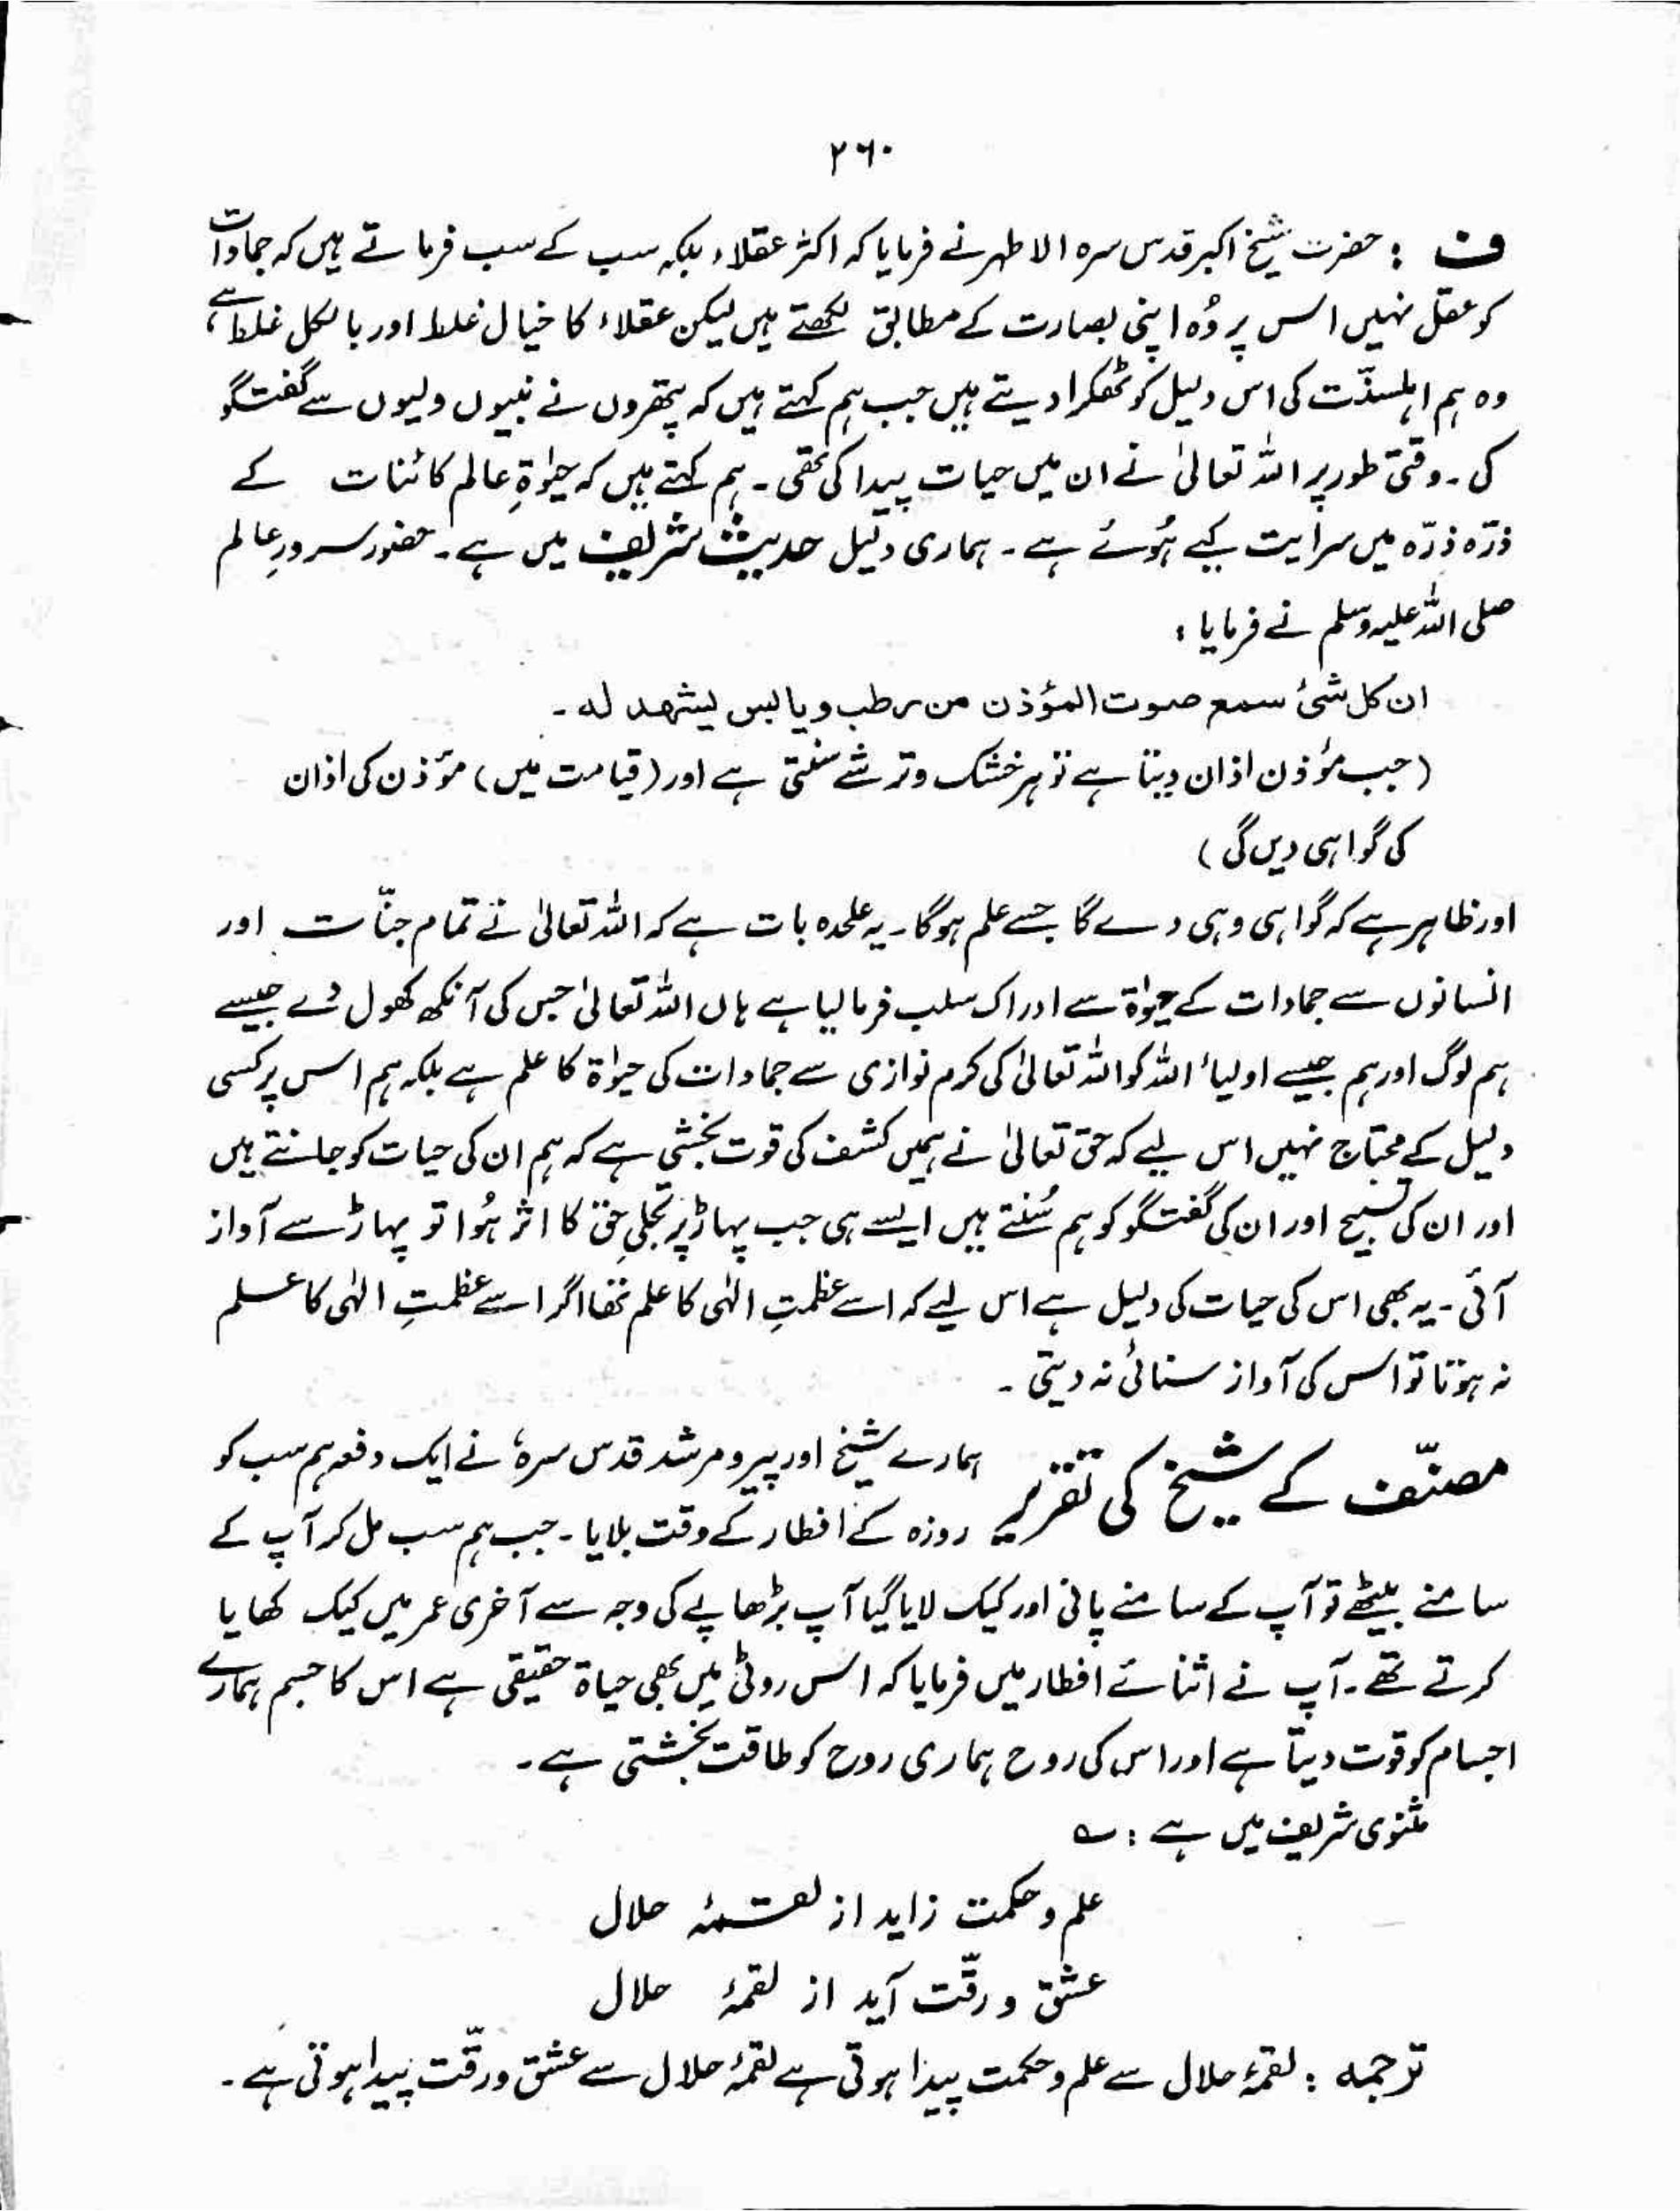 ۲۶۰
ف : حضرت شیخ اکبر قدس سرہ الاطہر نے فرمایا کہ اکثر عقلاء بلکہ سب کے سب فرماتے ہیں کہ جمادات
کو عقل نہیں اس پر وُہ اپنی بصارت کے مطابق لکھتے ہیں لیکن عقلاء کا خیال غلط اور بالکل غلط ہے،
وہ ہم اہلسنّت کی اس دلیل کو ٹھکرا دیتے ہیں جب ہم کہتے ہیں کہ پتھروں نے نبیوں ولیوں سے گفتگو
کی۔ وقتی طور پر اللہ تعالیٰ نے ان میں حیات پیدا کی تھی۔ ہم کہتے ہیں کہ حیٰوۃِ عالم کائنات کے
ذرّہ ذرّہ میں سرایت کیے ہُوئے ہے۔ ہماری دلیل حدیث شریف میں ہے۔ حضور سرورِ عالم
صلی اللہ علیہ وسلم نے فرمایا :
ان کل شئ سمع صوت المؤذن من رطب و یابس یشھد لہ۔
(جب مؤذن اذان دیتا ہے تو ہر خشک و تر شے سنتی ہے اور (قیامت میں) مؤذن کی اذان
کی گواہی دیں گی)
اور ظاہر ہے کہ گواہی وہی دے گا جسے علم ہوگا۔ یہ علحدہ بات ہے کہ اللہ تعالیٰ نے تمام جنّات اور
انسانوں سے جمادات کے حیٰوۃ سے ادراک سلب فرما لیا ہے ہاں اللہ تعالیٰ جس کی آنکھ کھول دے جیسے
ہم لوگ اور ہم جیسے اولیأ اللہ کو اللہ تعالیٰ کی کرم نوازی سے جمادات کی حیٰوۃ کا علم ہے بلکہ ہم اس پر کسی
دلیل کے محتاج نہیں اس لیے کہ حق تعالیٰ نے ہمیں کشف کی قوت بخشی ہے کہ ہم ان کی حیات کو جانتے ہیں
اور ان کی تسبیح اور ان کی گفتگو کو ہم سُنتے ہیں ایسے ہی جب پہاڑ پر تجلیِ حق کا اثر ہُوا تو پہاڑ سے آواز
آئی۔ یہ بھی اس کی حیات کی دلیل ہے اس لیے کہ اسے عظمتِ الٰہی کا علم تھا اگر اسے عظمتِ الٰہی کا علم
نہ ہوتا تو اس کی آواز سنائی نہ دیتی۔
مصنّف کے شیخ کی تقریر ہمارے شیخ اور پیر و مرشد قدس سرہٗ نے ایک دفعہ ہم سب کو
روزہ کے افطار کے وقت بلایا۔ جب ہم سب مل کر آپ کے
سامنے بیٹھے تو آپ کے سامنے پانی اور کیک لایا گیا آپ بڑھاپے کی وجہ سے آخری عمر میں کیک کھایا
کرتے تھے۔ آپ نے اثنائے افطار میں فرمایا کہ اس روٹی میں بھی حیاۃ حقیقی ہے اس کا جسم ہمارے
اجسام کو قوت دیتا ہے اور اس کی روح ہماری روح کو طاقت بخشتی ہے۔
مثنوی شریف میں ہے : ؎
علم و حکمت زاید از لقمۂ حلال
عشق و رقّت آید از لقمۂ حلال
ترجمہ : لقمۂ حلال سے علم و حکمت پیدا ہوتی ہے لقمۂ حلال سے عشق و رقّت پیدا ہوتی ہے۔